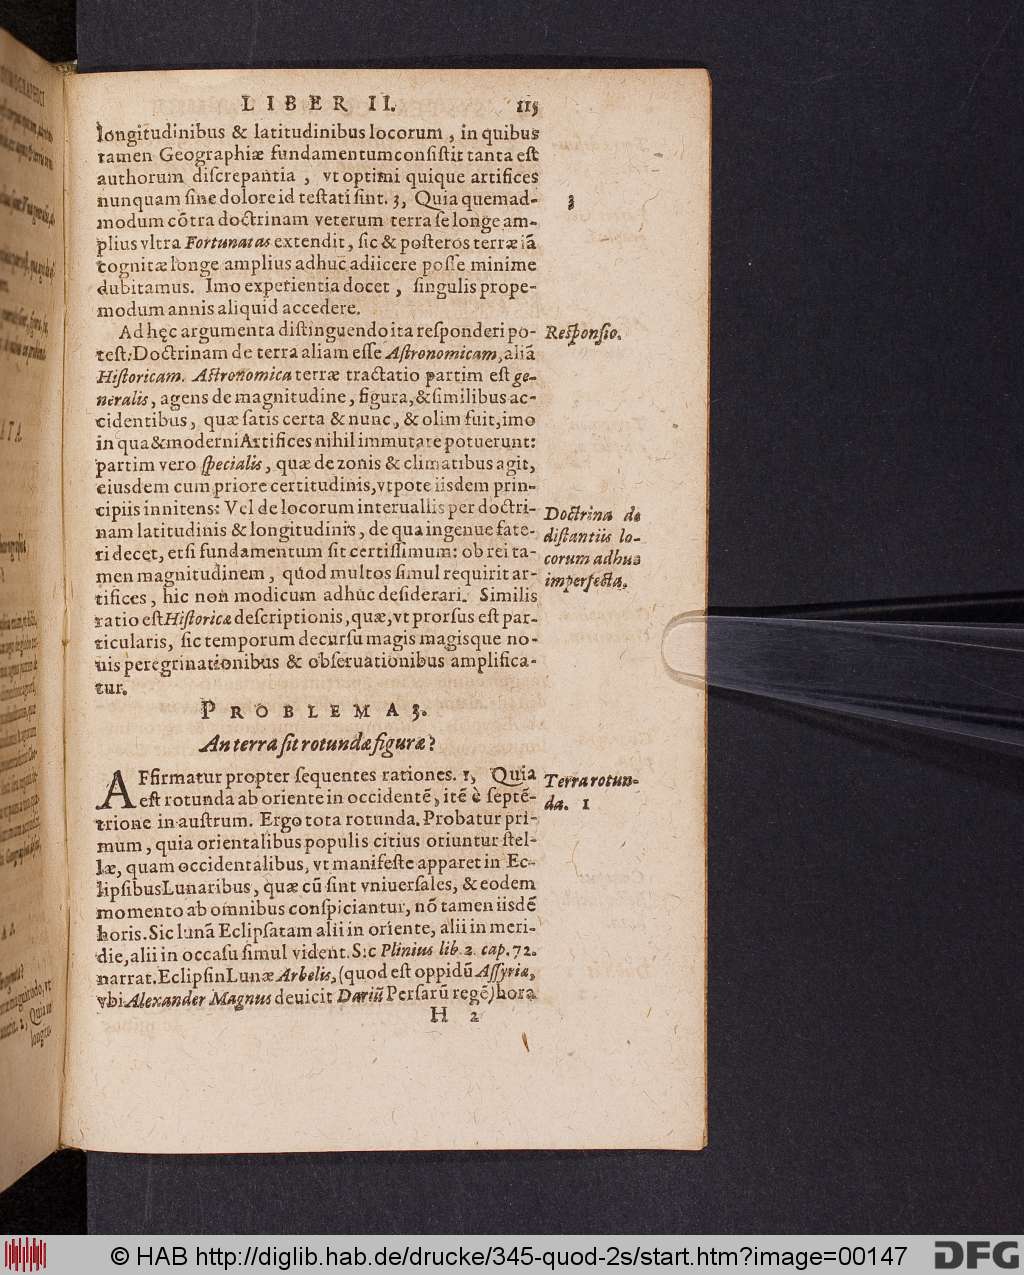 LIBER II. 115
longitudinibus & latitudinibus locorum, in quibus
tamen Geographiæ fundamentum consistit tanta est
authorum discrepantia, vt optimi quique artifices
nunquam sine dolore id testati sint. 3, Quia quemad-
modum cõtra doctrinam veterum terra se longe am-
plius vltra Fortunatas extendit, sic & posteros terræ iã
cognitæ longe amplius adhuc adiicere posse minime
dubitamus. Imo experientia docet, singulis prope-
modum annis aliquid accedere.
3
Ad hęc argumenta distinguendo ita responderi po-
test: Doctrinam de terra aliam esse Astronomicam, aliã
Historicam. Astronomica terræ tractatio partim est ge-
neralis, agens de magnitudine, figura, & similibus ac-
cidentibus, quæ satis certa & nunc, & olim fuit, imo
in qua & moderni Artifices nihil immutare potuerunt:
partim vero specialis, quæ de zonis & climatibus agit,
eiusdem cum priore certitudinis, vtpote iisdem prin-
cipiis innitens: Vel de locorum interuallis per doctri-
nam latitudinis & longitudinis, de qua ingenue fate-
ri decet, etsi fundamentum sit certissimum: ob rei ta-
men magnitudinem, quod multos simul requirit ar-
tifices, hic non modicum adhuc desiderari. Similis
ratio est Historicæ descriptionis, quæ, vt prorsus est par-
ticularis, sic temporum decursu magis magisque no-
uis peregrinationibus & obseruationibus amplifica-
tur.
Responsio.
Doctrina de
distantiis lo-
corum adhuc
imperfecta.
PROBLEMA 3.
An terra sit rotundæ figuræ?
AFfirmatur propter sequentes rationes. 1, Quia
est rotunda ab oriente in occidentẽ, itẽ è septẽ-
trione in austrum. Ergo tota rotunda. Probatur pri-
mum, quia orientalibus populis citius oriuntur stel-
læ, quam occidentalibus, vt manifeste apparet in Ec-
lipsibus Lunaribus, quæ cũ sint vniuersales, & eodem
momento ab omnibus conspiciantur, nõ tamen iisdẽ
horis. Sic lunã Eclipsatam alii in oriente, alii in meri-
die, alii in occasu simul vident. Sic Plinius lib. 2. cap. 72.
narrat. Eclipsin Lunæ Arbelis, (quod est oppidũ Assyriæ,
vbi Alexander Magnus deuicit Dariũ Persarũ regẽ) hora
H 2
Terra rotun-
da. 1
© HAB http://diglib.hab.de/drucke/345-quod-2s/start.htm?image=00147
DFG